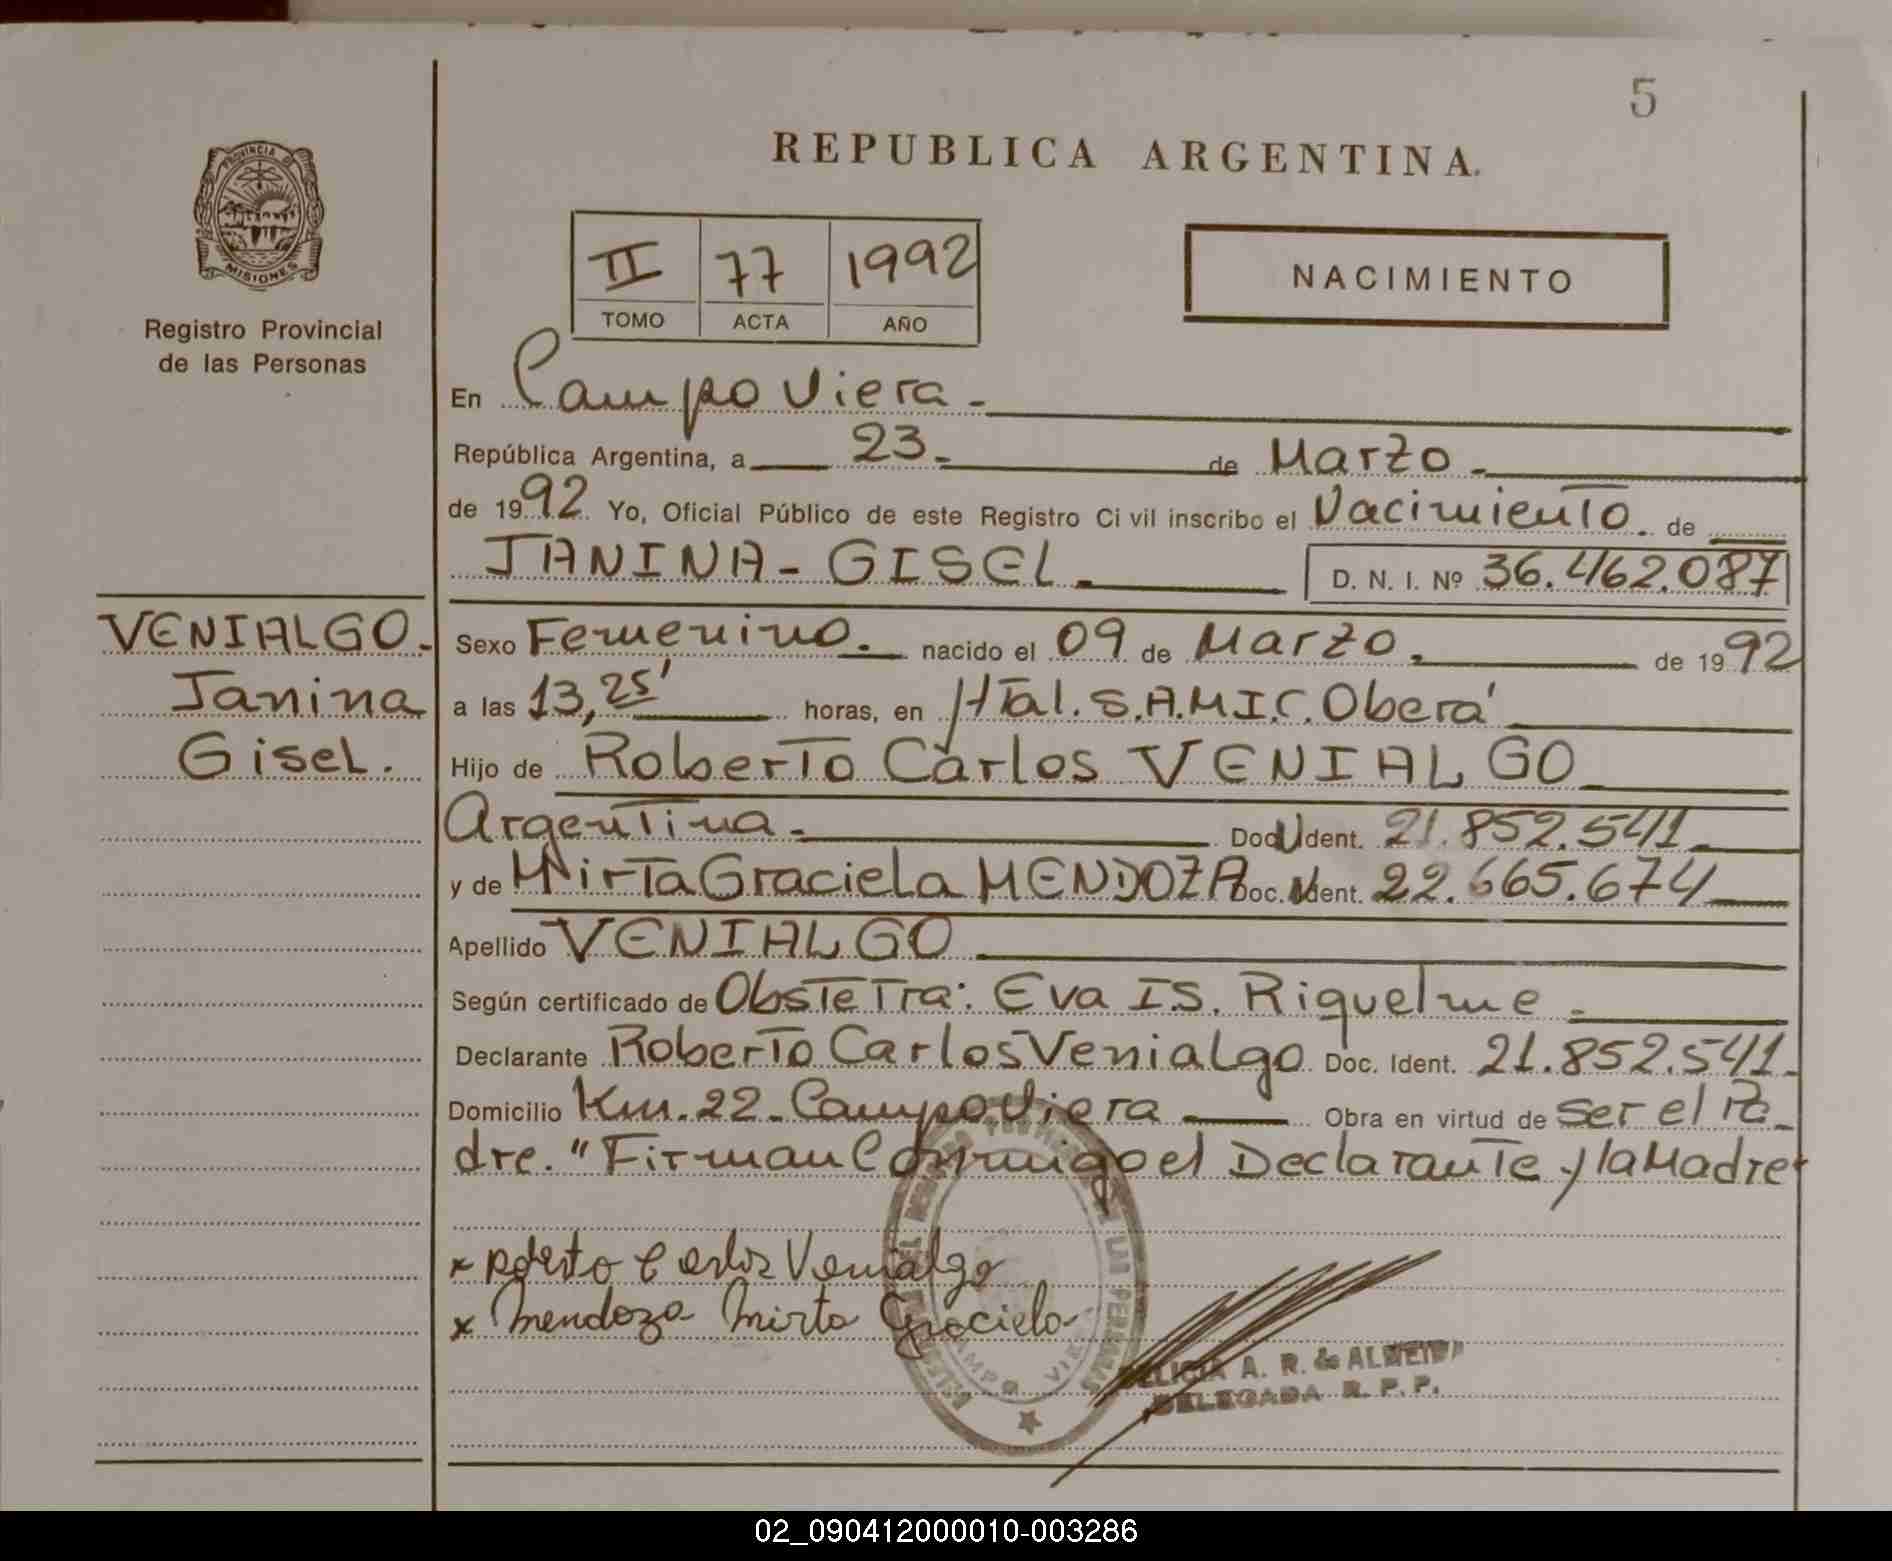 5
REPUBLICA ARGENTINA.
PROVINCIA D
MISIONES
Registro Provincial
de las Personas
II 77 1992
TOMO ACTA AÑO
NACIMIENTO
En Campo Viera.
República Argentina, a 23 de Marzo
de 1992 Yo, Oficial Público de este Registro Civil inscribo el Nacimiento de
JANINA - GISEL D. N. I. Nº 36.462.087
VENIALGO.
Janina
Gisel.
Sexo Femenino. nacido el 09 de Marzo. de 1992
a las 13,25' horas, en Htal. S.A.M.I.C. Oberá
Hijo de Roberto Carlos VENIALGO
Argentina. Doc. Ident. 21.852.541
y de Mirta Graciela MENDOZA Doc. Ident. 22.665.674
Apellido VENIALGO
Según certificado de Obstetra: Eva IS. Riquelme
Declarante Roberto Carlos Venialgo Doc. Ident. 21.852.541.
Domicilio Km. 22 - Campo Viera Obra en virtud de ser el Pa
dre. "Firman Conmigo el Declarante y la Madre
x Roberto Carlos Venialgo
x Mendoza Mirta Graciela
LAS PERSONAS
CAMPO VIERA
A. R. de ALMEIDA
DELEGADA R. P. P.
02_090412000010-003286